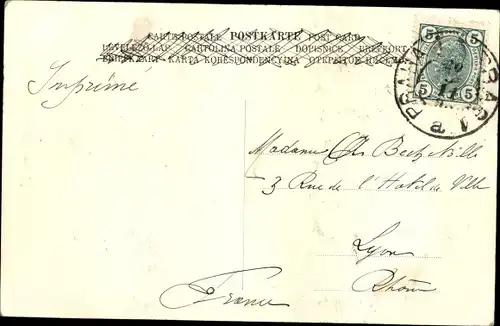 CARTE POSTALE POSTKARTE POST CARD
LEVELEZŐ-LAP CARTOLINA POSTALE DOPISNICE BREFKORT
BRIEFKAART KARTA KORESPONDENCYJNA ОТКРЫТОЕ ПИСЬМО
5 5
5 5
PRAHA PRAG 1
a
Imprimé
Madame
3 Rue de l'Hotel de Ville
Lyon
Rhône
France